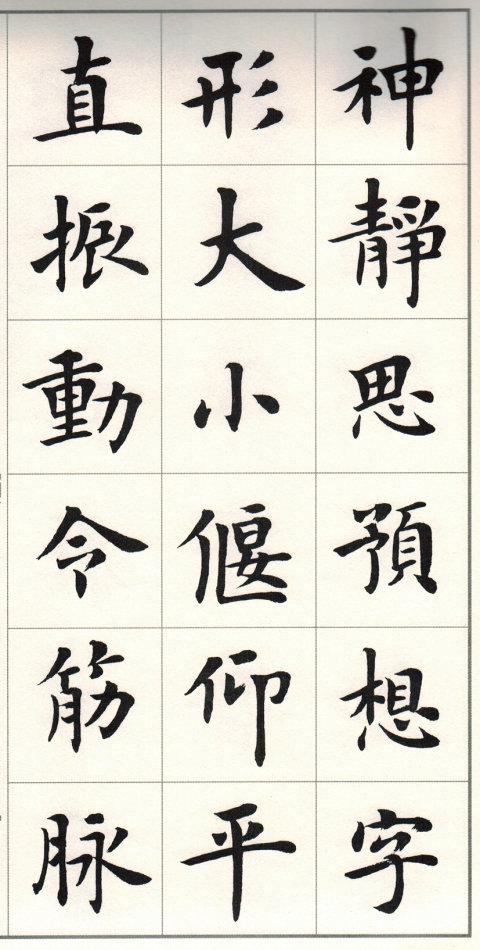 神靜思預想字
形大小偃仰平
直振動令筋脉